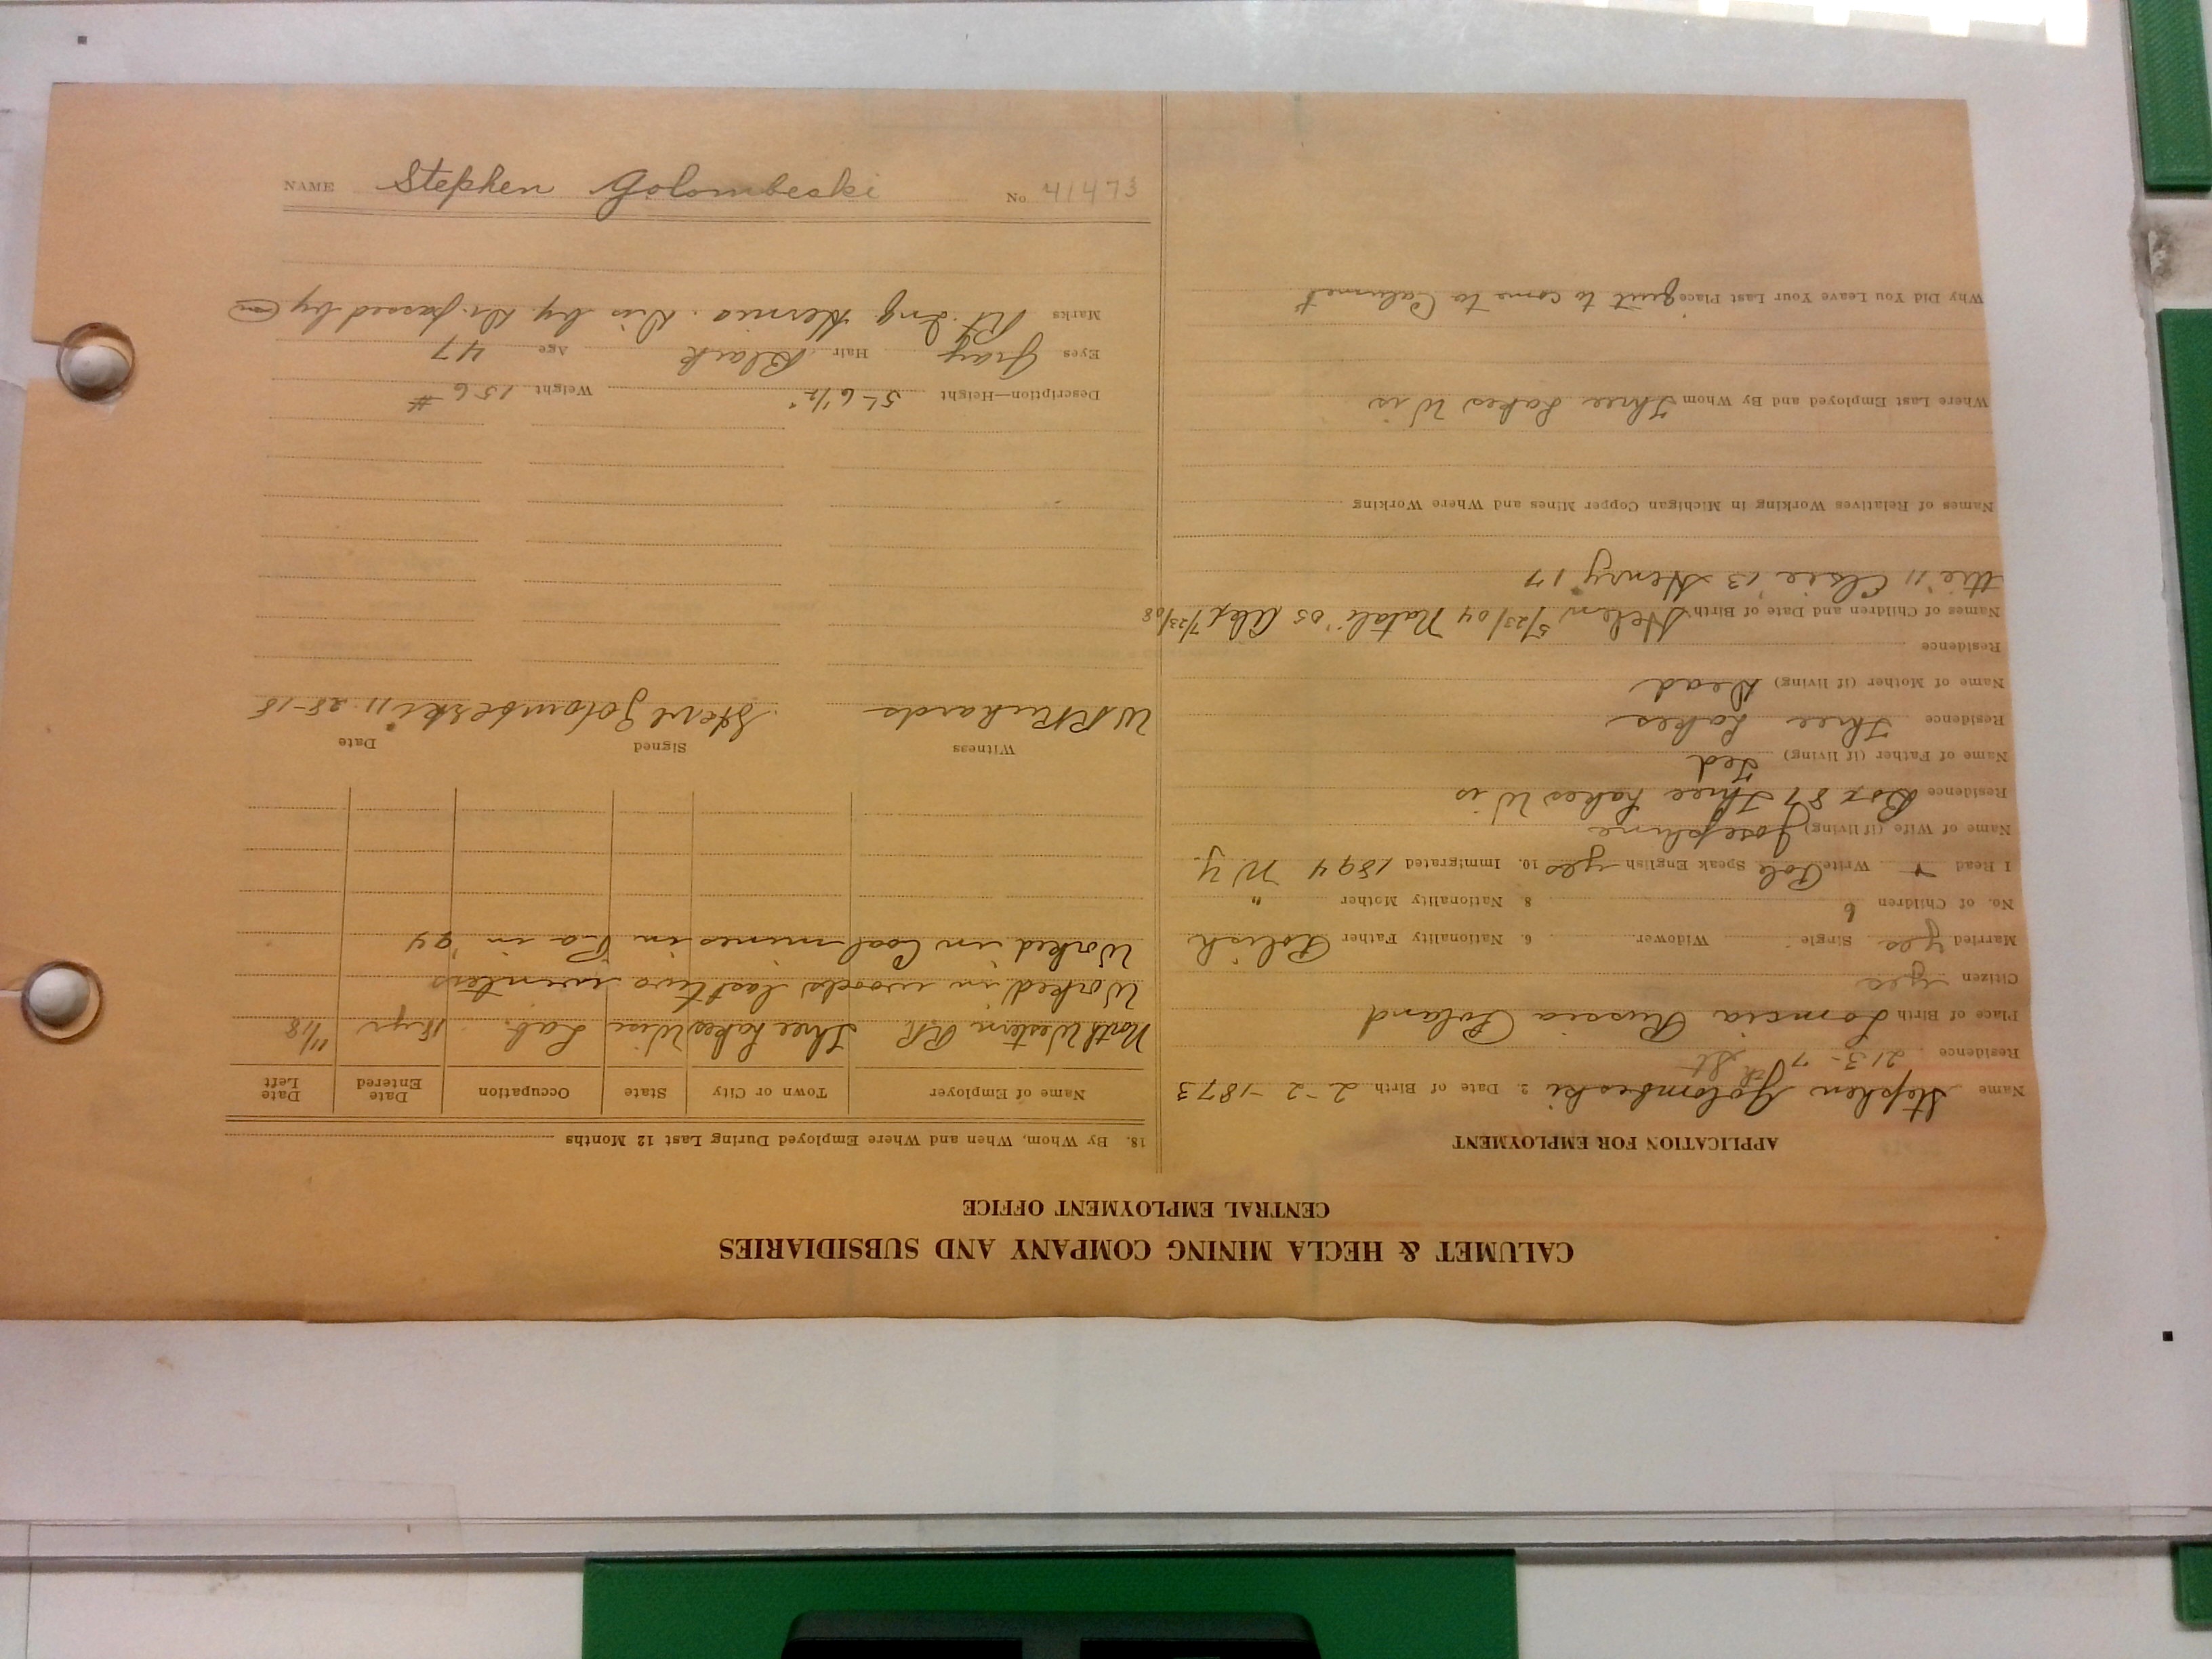 CALUMET & HECLA MINING COMPANY AND SUBSIDIARIES
CENTRAL EMPLOYMENT OFFICE
APPLICATION FOR EMPLOYMENT
Name Stephen Golombeski 2. Date of Birth 2-2-1873
Residence 213-7th St
Place of Birth Lomcia Russia Poland
Citizen yes
Married yes Single Widower 6. Nationality Father Polish
No. of Children 6 8. Nationality Mother "
I Read + Write Pole Speak English yes 10. Immigrated 1894 N.Y.
Name of Wife (if living) Josephine
Residence Box 87 Three Lakes Wis
Name of Father (if living) Ted
Residence Three Lakes
Name of Mother (if living) Dead
Residence
Names of Children and Date of Birth Helen 5/23/04 Natali '05 Alex 7/23/08
'11 Elsie '13 Henry '17
Names of Relatives Working in Michigan Copper Mines and Where Working
Where Last Employed and By Whom Three Lakes Wis
Why Did You Leave Your Last Place quit to come to Calumet
18. By Whom, When and Where Employed During Last 12 Months
Name of Employer Town or City State Occupation Date Entered Date Left
North Western RR. Three Lakes Wisc Lab. 18 yr 11/18
Worked in woods last two winters
Worked in Coal mines in Pa in '94
Witness Signed Date
W R Richards Steve Golombeski 11-28-18
Description—Height 5'-6 1/2" Weight 156 #
Eyes Gray Hair Black Age 47
Marks Rt. Ing. Hernia. Dis by Dr. passed by
NAME Stephen Golombeski No 41473